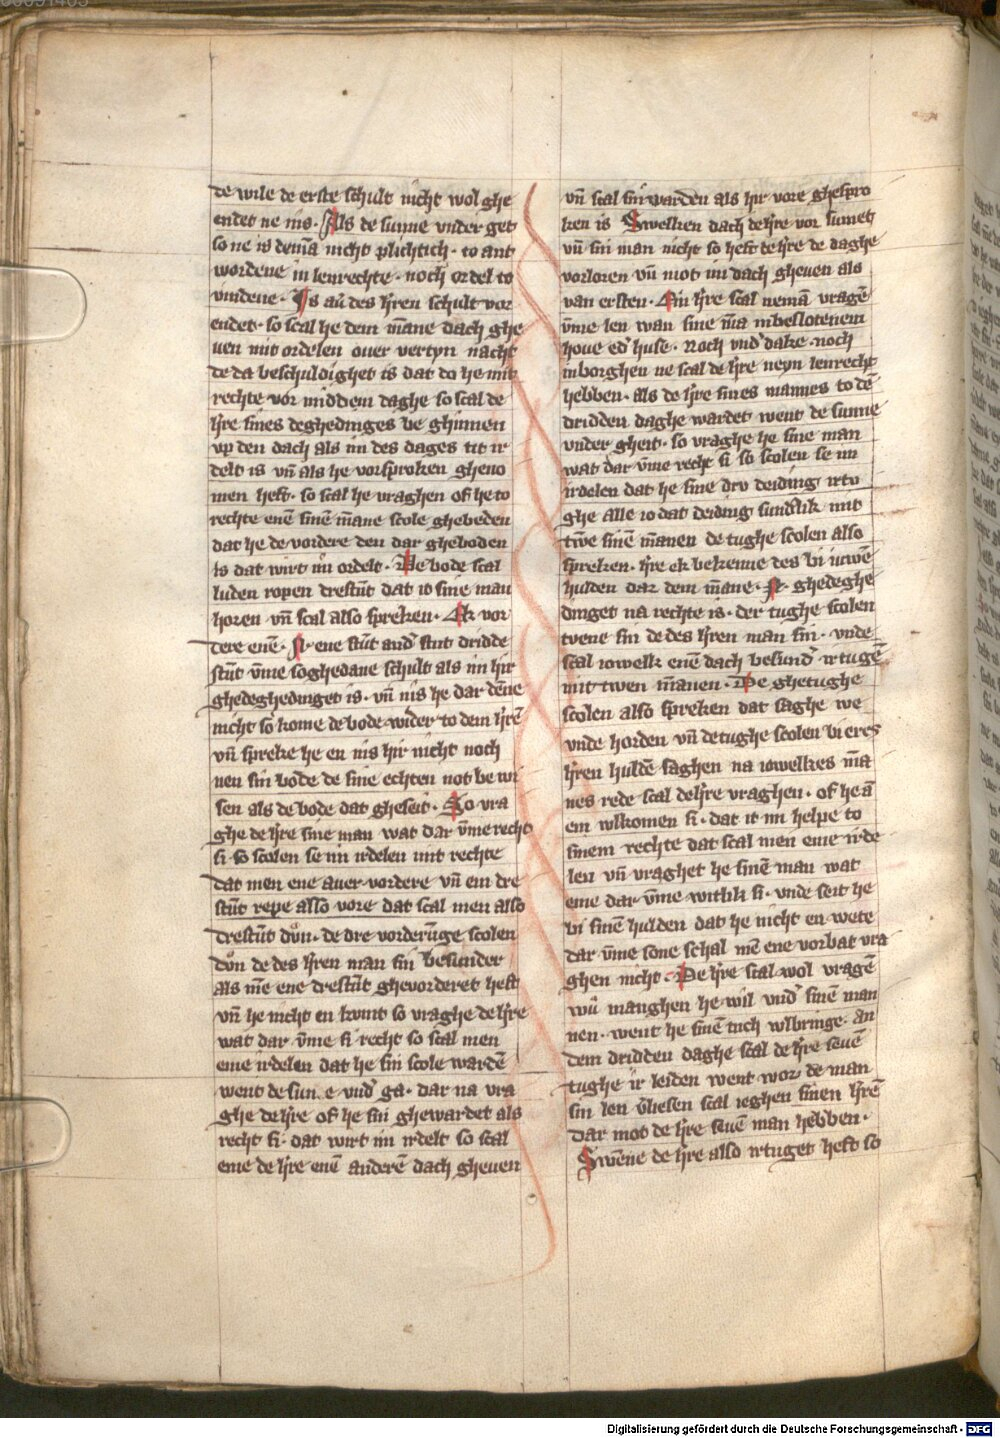 de wile de erste schult nicht wol ghe
endet ne nis. Als de sunne vnder get
so ne is denna̅ nicht plichtich. to ant
wordene in lenrechte. noch ordel to
vindene. Is au̅ des h̅ren schult vor
endet. so scal he dem ma̅ne dach ghe
uen mit ordelen ouer vertyn nacht
de da beschuldighet is dat do he mit
rechte vor middem daghe so scal de
h̅re sines deghedinges be ghinnen
vp den dach als im des dages tit ir
delt is vn̅ als he vorsproken gheno
men heft. so scal he vraghen of he to
rechte ene̅ sine̅ ma̅ne scole ghebeden
dat he de vordere den dar gheboden
is dat wirt im ordelt. De bode scal
luden ropen drestu̅t dat it sine man
horen vn̅ scal also spreken. Ik vor
dere ene̅. Ir ene stu̅t and̅ stu̅t dridde
stu̅t vm̅e soghedane schult als im hir
ghedeghedinget is. vn̅ nis he dar de̅ne
nicht so kome de bode wider to dem h̅re̅
vn̅ spreke he en nis hir nicht noch
nen sin bode de sine echten not be wi
sen als de bode dat gheseit. So vra
ghe de h̅re sine man wat dar vm̅e recht
si. so scolen se im irdelen mit rechte
dat men ene auer vordere vn̅ ein dre
stu̅t repe also vore dat scal men also
drestu̅t dv̊n. de dre vorderu̅ge scolen
dv̊n de des h̅ren man sin besunder
als me̅ ene drestu̅t ghevorderet heft
vn̅ he nicht en kvmt so vraghe de h̅re
wat dar vm̅e si recht so scal men
eme irdelen dat he sin scole warde̅
went de sunne vnd̅ ga. dar na vra
ghe de h̅re of he sin ghewardet als
recht si. dat wirt im irdelt so scal
eme de h̅re ene̅ andere̅ dach gheuen
vn̅ scal sin warden als hir vore ghespro
ken is Swelken dach de h̅re vor sumet
vn̅ sin man nicht so heft de h̅re de daghe
vorloren vn̅ mot im dach gheuen als
van ersten. Ain h̅re scal nema̅ vrage̅
vm̅e len wan sine ma̅ in beslotenem
houe ed̅ huse. Noch vnd̅ dake. noch
in borghen ne scal de h̅re neyn lenrecht
hebben. als de h̅re sines mannes to de̅
dridden daghe wardet went de sunne
vnder gheit. so vraghe he sine man
wat dar vm̅e recht si so scolen se im
irdelen dat he sine drv deiding irtv
ghe alle io dat deiding sund̅lik mit
twe̅ sine̅ ma̅nen de tughe scolen also
spreken. h̅re ek bekenne des bi iuwe̅
hulden dar dem ma̅ne. Ir ghedeghe
dinget na rechte is. der tughe scolen
twene sin de des h̅ren man sin. vnde
scal iowelk ene̅ dach besund̅ irtuge̅
mit twen ma̅nen. De ghetughe
scolen also spreken dat saghe we
vnde horden vn̅ de tughe scolen bi eres
h̅ren hulde̅ saghen na iowelkes ma̅
nes rede scal de h̅re vraghen. of he a̅
em wlkomen si. dat it im helpe to
sinem rechte dat scal men eme irde
len vn̅ vraghet he sine̅ man wat
eme dar vm̅e witlik si. vnde seit he
bi sine̅ hulden dat he nicht en wete
dar vm̅e sone schal me̅ ene vorbat vra
ghen nicht. De h̅re scal wol vrage̅
wu̅ manghen he wil vnd̅ sine̅ man
nen. went he sine̅ tuch wlbringe. an
dem dridden daghe scal de h̅re seue̅
tughe ir leiden went wor de man
sin len v̅liesen scal ieghen sinen h̅re̅
dar mot de h̅re seue̅ man hebben.
Swe̅ne de h̅re also irtuget heft so
Digitalisierung gefördert durch die Deutsche Forschungsgemeinschaft - DFG